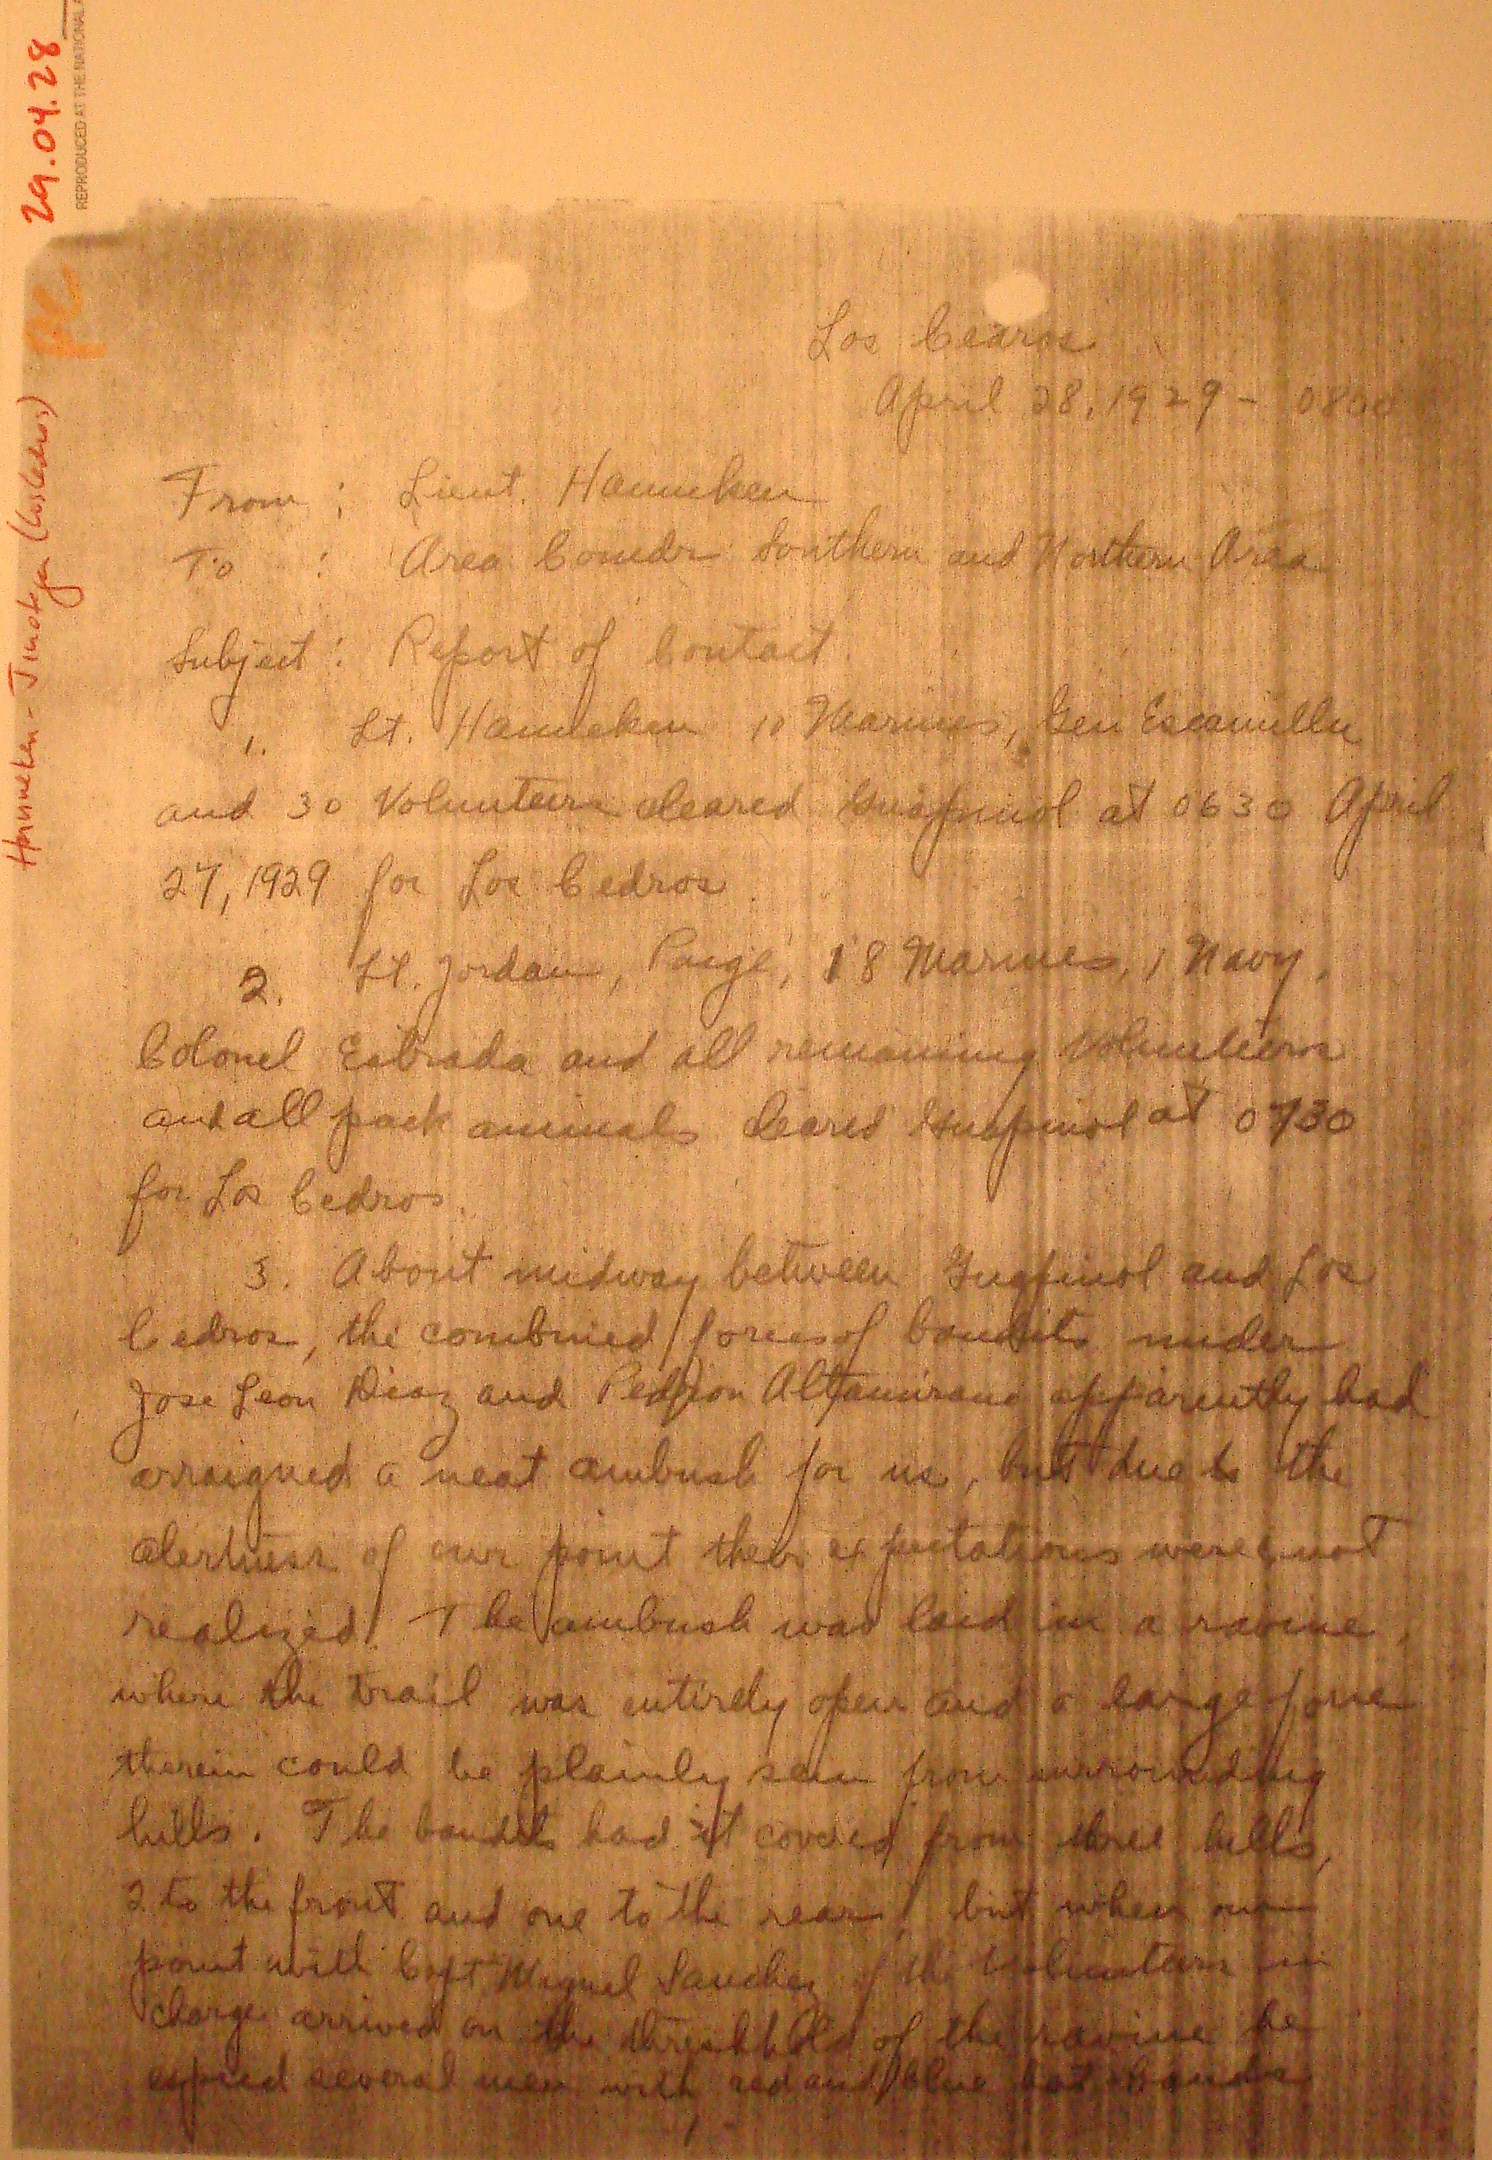 29.04.28
REPRODUCED AT THE NATIONAL A
Hanneken - Jinotega (Los Cedros)
Los Cedros
April 28, 1929 - 0800
From : Lieut. Hanneken
To : Area Comdr Southern and Northern Area
Subject : Report of Contact.
1. Lt. Hanneken 10 Marines, Gen Escamilla
and 30 Volunteers cleared Guapinol at 0630 April
27, 1929 for Los Cedros.
2. Lt. Jordan, Paige, 18 Marines, 1 Navy,
Colonel Estrada and all remaining Volunteers
and all pack animals cleared Guapinol at 0730
for Los Cedros.
3. About midway between Guapinol and Los
Cedros, the combined forces of bandits under
Jose Leon Diaz and Pedron Altamirano apparently had
arraigned a neat ambush for us, but due to the
alertness of our point their expectations were not
realized. The ambush was laid in a ravine,
where the trail was entirely open and a large force
therein could be plainly seen from surrounding
hills. The bandits had it covered from three hills,
2 to the front and one to the rear, but when our
point with Capt Miguel Sanchez of the Volunteers in
charge arrived on the threshhold of the ravine he
espied several men with red and blue hat bands